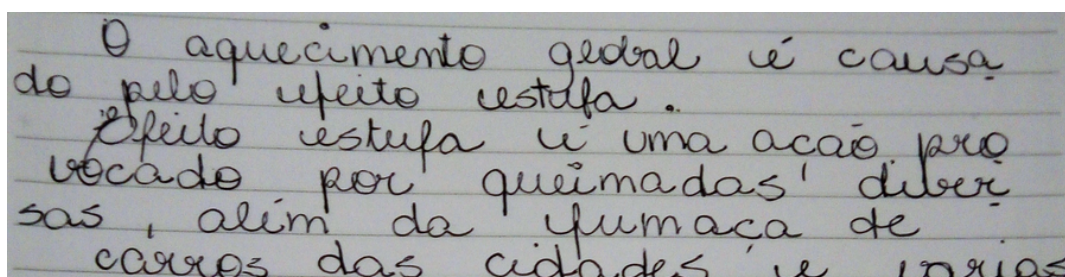 O aquecimento geobal é causa
do pelo efeito estufa.
Efeito estufa é uma acaõ pro
vocado por queimadas diber
sas, além da fumaça de
carros das cidades e varias